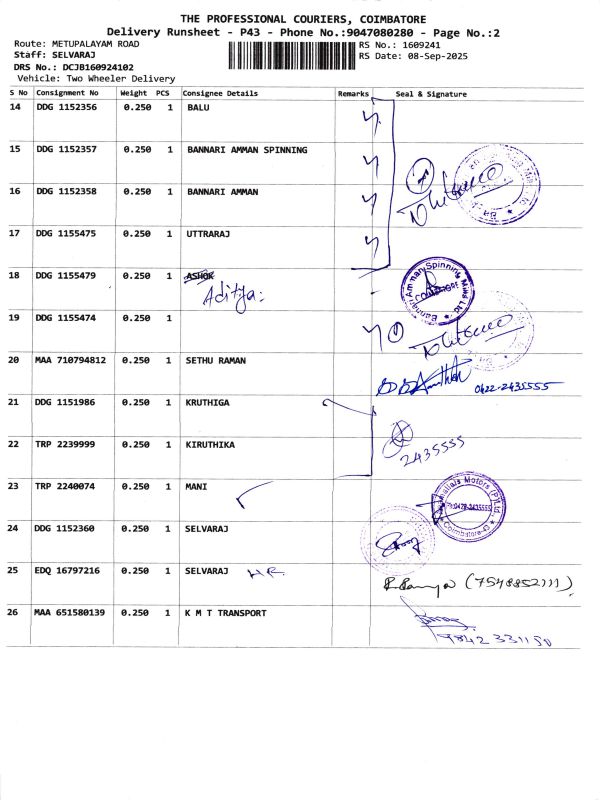 THE PROFESSIONAL COURIERS, COIMBATORE
Delivery Runsheet - P43 - Phone No.:9047080280 - Page No.:2
Route: METUPALAYAM ROAD RS No.: 1609241
Staff: SELVARAJ RS Date: 08-Sep-2025
DRS No.: DCJB160924102
Vehicle: Two Wheeler Delivery
S No Consignment No Weight PCS Consignee Details Remarks Seal & Signature
14 DDG 1152356 0.250 1 BALU
15 DDG 1152357 0.250 1 BANNARI AMMAN SPINNING
16 DDG 1152358 0.250 1 BANNARI AMMAN
17 DDG 1155475 0.250 1 UTTRARAJ
18 DDG 1155479 0.250 1 ASHOK
Aditya:
Bannari Amman Spinning Mills Ltd
19 DDG 1155474 0.250 1
20 MAA 710794812 0.250 1 SETHU RAMAN
0422-2435555
21 DDG 1151986 0.250 1 KRUTHIGA
22 TRP 2239999 0.250 1 KIRUTHIKA
2435555
23 TRP 2240074 0.250 1 MANI
Motors (P) Ltd
Ph:0422-2435555
Coimbatore
24 DDG 1152360 0.250 1 SELVARAJ
25 EDQ 16797216 0.250 1 SELVARAJ HR
(7548852111)
26 MAA 651580139 0.250 1 K M T TRANSPORT
9842 331150